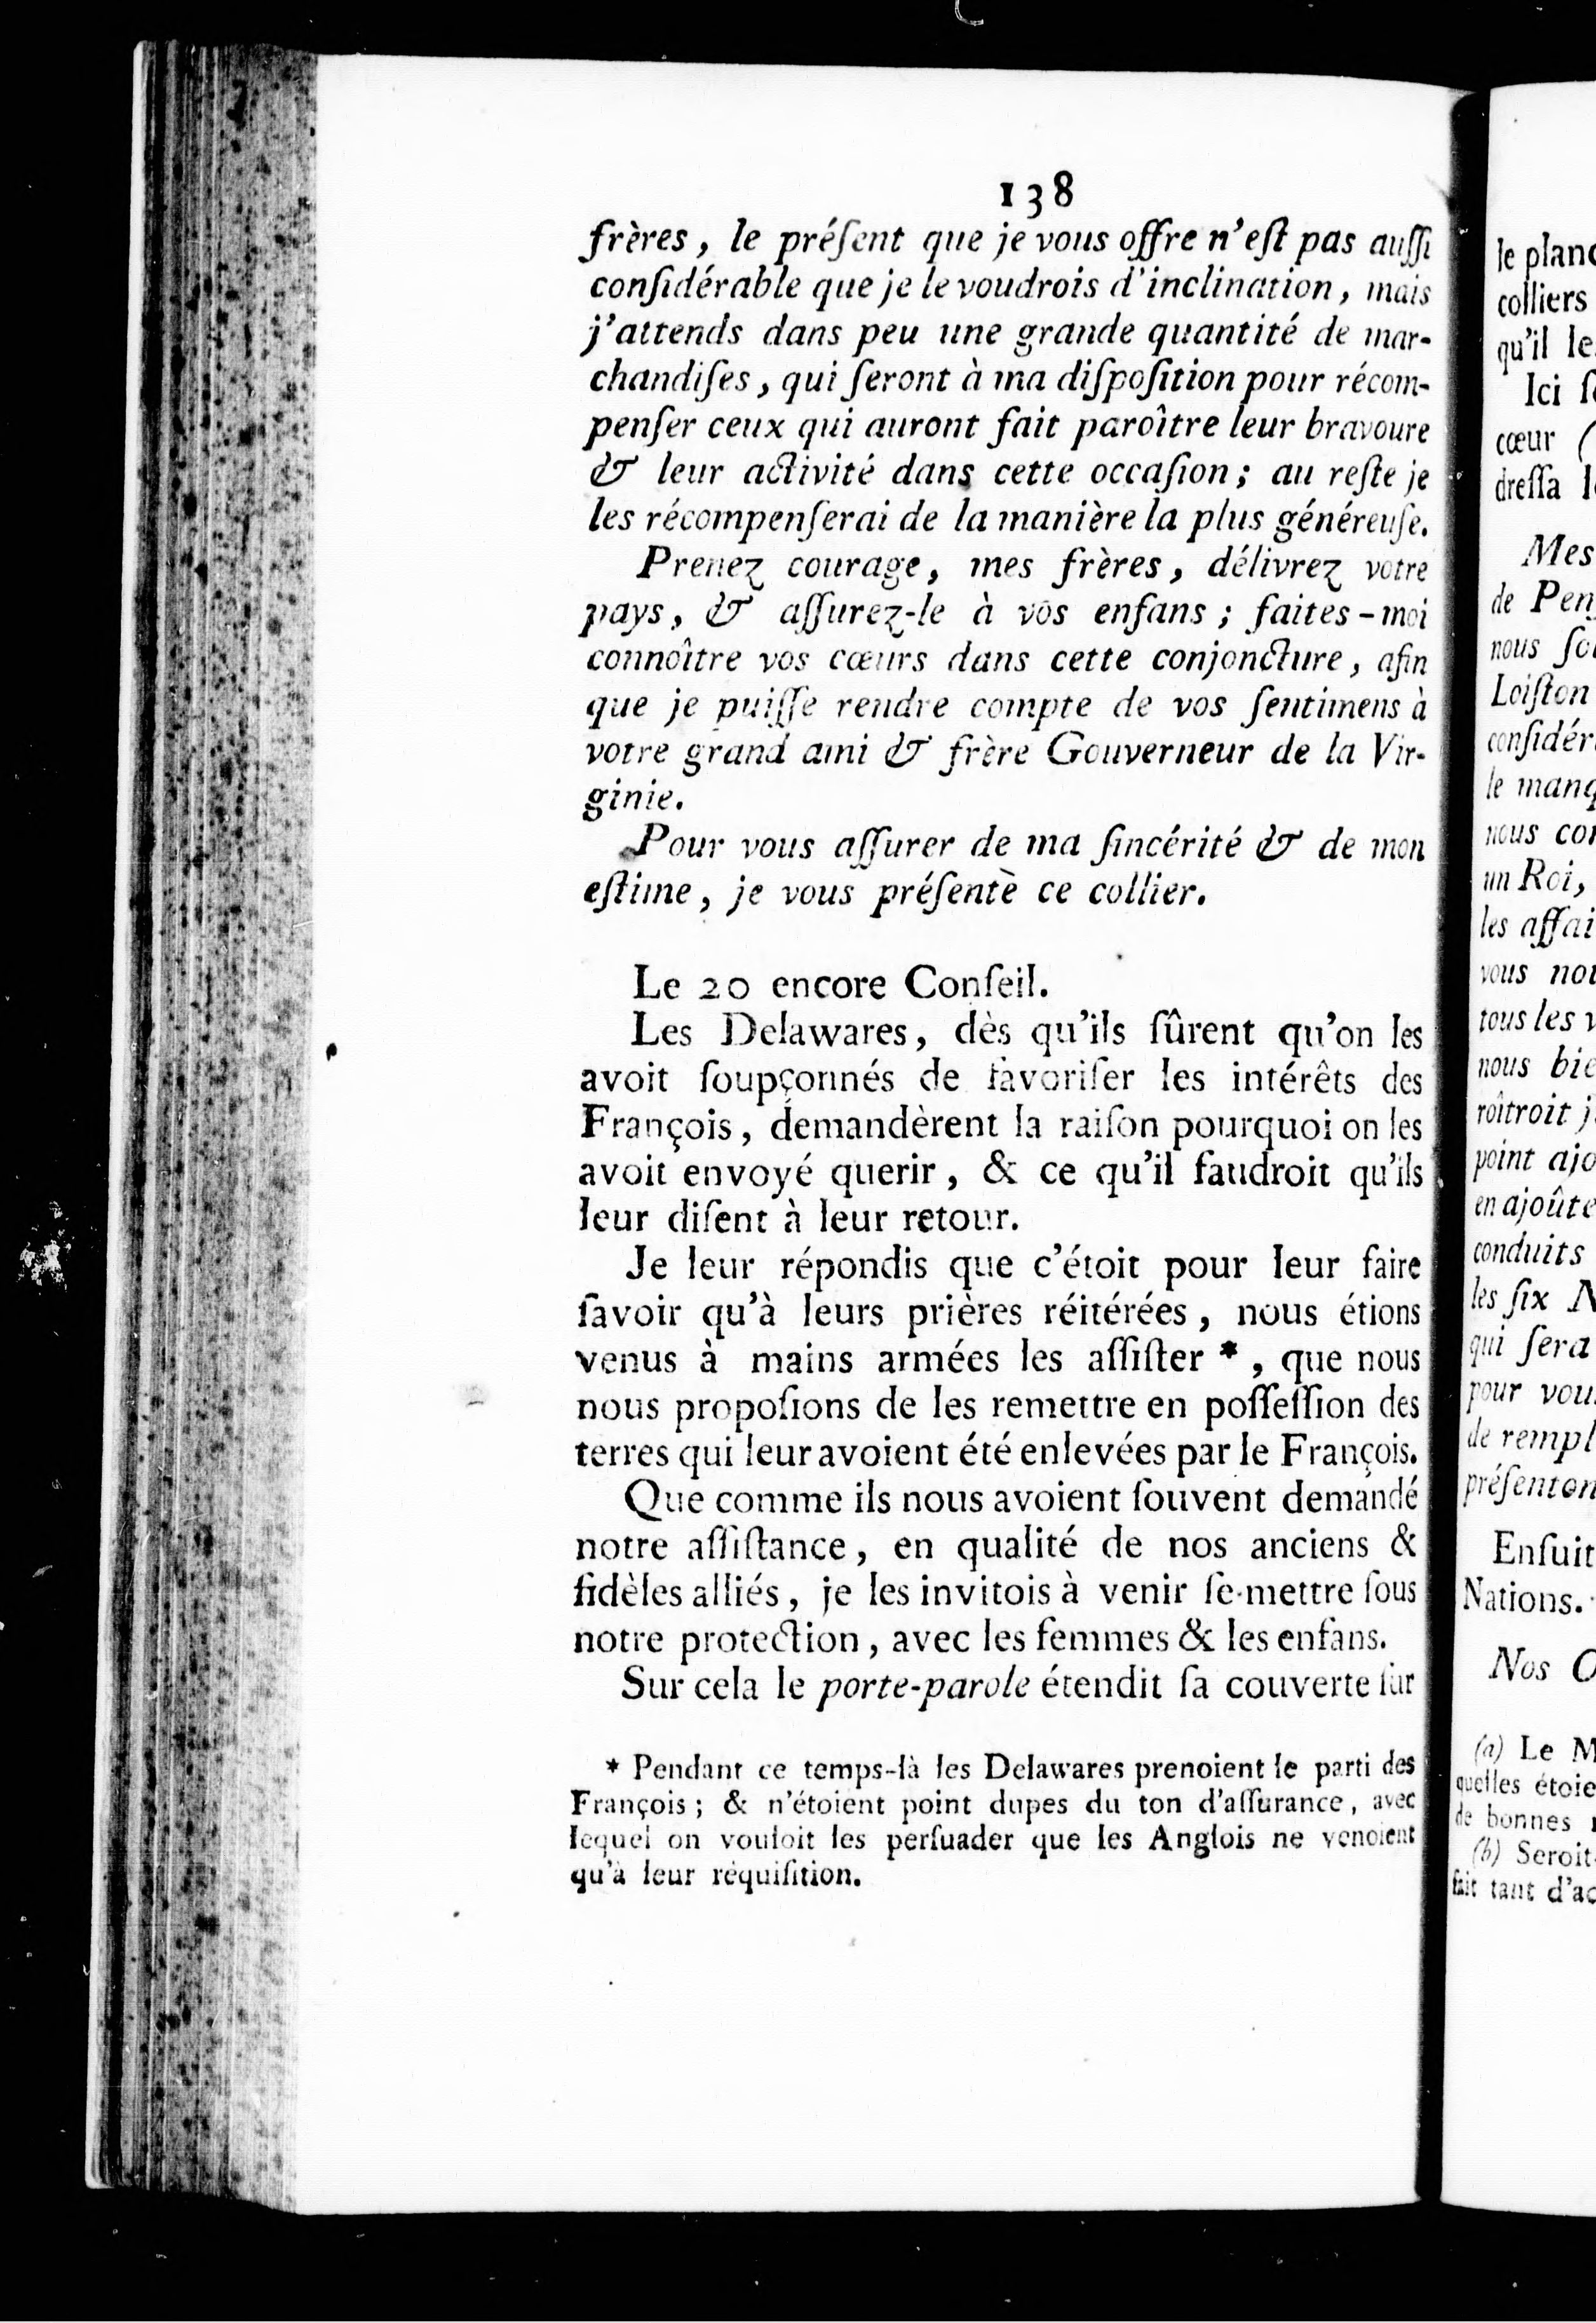 138
frères, le préſent que je vous offre n'eſt pas auſſi
conſidérable que je le voudrois d'inclination, mais
j'attends dans peu une grande quantité de mar-
chandiſes, qui ſeront à ma diſpoſition pour récom-
penſer ceux qui auront fait paroître leur bravoure
& leur activité dans cette occaſion; au reſte je
les récompenſerai de la manière la plus généreuſe.
Prenez courage, mes frères, délivrez votre
pays, & aſſurez-le à vos enfans; faites-moi
connoître vos cœurs dans cette conjoncture, afin
que je puiſſe rendre compte de vos ſentimens à
votre grand ami & frère Gouverneur de la Vir-
ginie.
Pour vous aſſurer de ma ſincérité & de mon
eſtime, je vous préſentè ce collier.
Le 20 encore Conſeil.
Les Delawares, dès qu'ils ſûrent qu'on les
avoit ſoupçonnés de favoriſer les intérêts des
François, demandèrent la raiſon pourquoi on les
avoit envoyé querir, & ce qu'il faudroit qu'ils
leur diſent à leur retour.
Je leur répondis que c'étoit pour leur faire
ſavoir qu'à leurs prières réitérées, nous étions
venus à mains armées les aſſiſter *, que nous
nous propoſions de les remettre en poſſeſſion des
terres qui leur avoient été enlevées par le François.
Que comme ils nous avoient ſouvent demandé
notre aſſiſtance, en qualité de nos anciens &
fidèles alliés, je les invitois à venir ſe mettre ſous
notre protection, avec les femmes & les enfans.
Sur cela le porte-parole étendit ſa couverte ſur
* Pendant ce temps-là les Delawares prenoient le parti des
François; & n'étoient point dupes du ton d'aſſurance, avec
lequel on vouloit les perſuader que les Anglois ne venoient
qu'à leur réquiſition.
le planc
colliers
qu'il le
Ici
cœur (
dreſſa
Mes
de Pen
nous
Loiſton
conſidér
le manq
nous con
un Roi,
les affai
vous nou
tous les v
nous bie
roîtroit j
point ajo
en ajoûte
conduits
les ſix N
qui ſera
pour vou
de rempl
préſenton
Enſuit
Nations.
Nos
(a) Le M
quelles étoie
de bonnes
(b) Seroit
fait tant d'ac